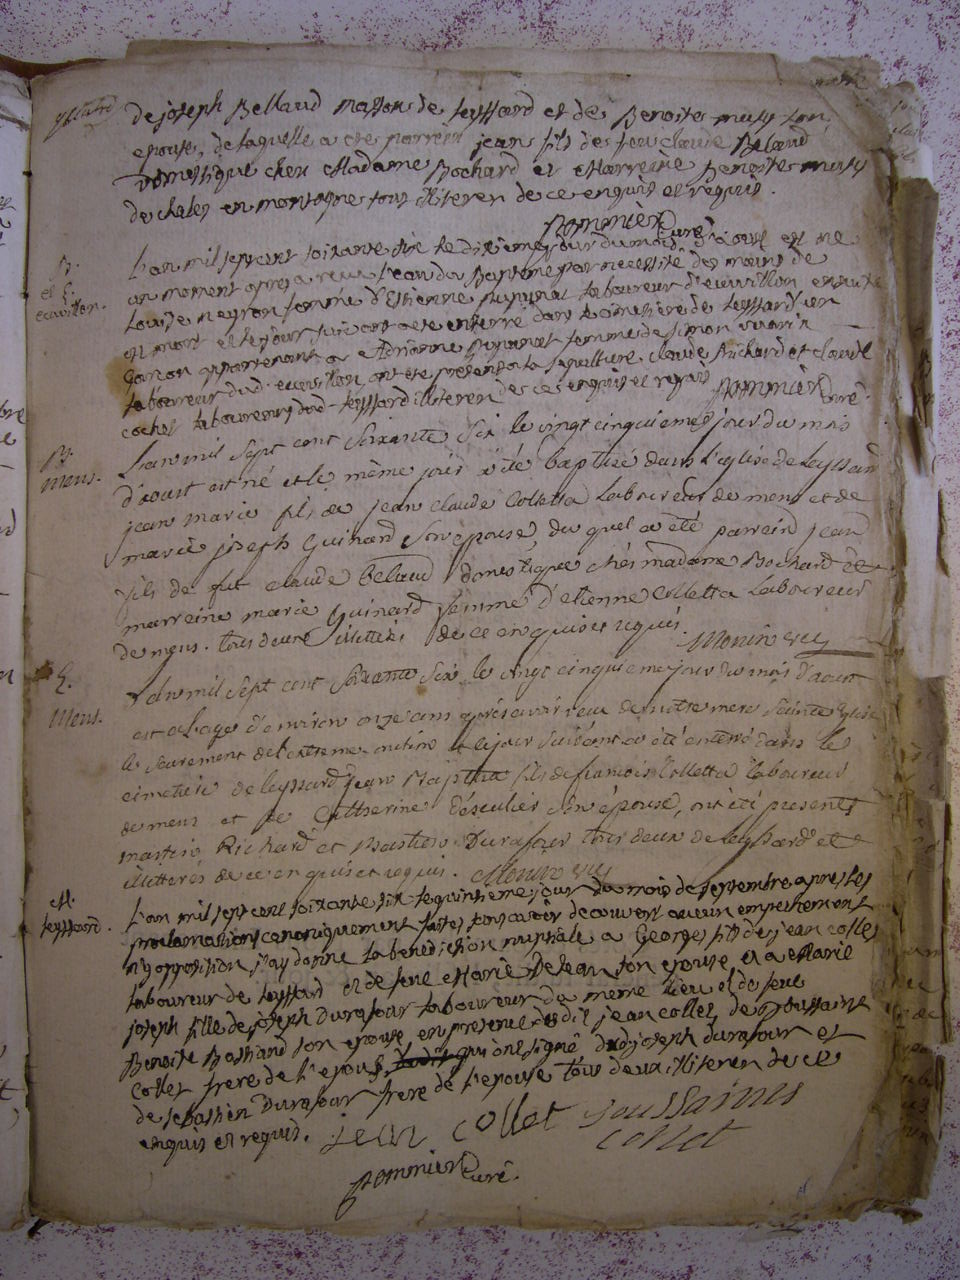 de joseph Bellaud masson de leyssard et de Benoite musy son
epouse, de laquelle a eté parrein jean fils de feu claude Belaud
domestique chez Madame Bochard et Marreine Benoite musy
de chales en montagne tous illiteres de ce enquis et requis.
pommier curé
B.
et E.
ecuvillon.
L'an mil sept cent soixante six le dixieme jour du mois d'aoust est né
un moment apres a reçu l'eau du Bapteme par necessité des mains de
Louise neyron femme d'Estienne laboureur d'ecuvillon ensuite
est mort et le jour suivant a eté enterré dans le cimetiere de leyssard un
garçon appartenant a Adrianne femme de simon
laboureur dud. ecuvillon, ont eté presents a la sepulture claude Richard et claude
cochet laboureurs dud. leyssard illiteres de ce enquis et requis pommier curé.
B.
mens.
L'an mil sept cent soixante six le vingt cinquieme jour du mois
d'aoust est né et le même jour a été baptisé dans l'eglise de leyssard
jean marie fils de jean claude Colletta Laboureur de mens et de
marie joseph Guinard son epouse, du quel a été parrein jean
fils de fut claude belaud domestique chés madame Bochard et
marreine marie Guinard femme d'etienne Colletta Laboureur
de mens. tous deux illitterés de ce enquis et requis.
Monin vic
E.
Mens.
L'an mil sept cent soixante six le vingt cinquieme jour du mois d'aoust
est a l'age d'environ onze ans après avoir reçu de notre mere sainte Eglise
le sacrement de l'extreme onction et le jour suivant a été enterré dans le
cimetiere de leyssard jean Baptista fils de francois Colletta laboureur
de mens et de Catherine son épouse, ont été presents
martin Richard et Bastien Durafour tous deux de leyssard et
illitterés de ce enquis et requis. Monin vic
M.
leyssard.
L'an mil sept cent soixante six le quinzieme jour du mois de septembre apres les
proclamations canoniquement faites sans avoir decouvert aucun empechement
n'y opposition j'ay donné la benediction nuptiale a George fils de jean collet
laboureur de leyssard et de feue Marie Dejean son epouse et a Marie
joseph fille de joseph Durafour laboureur du meme lieu et de feue
Benoite Bossand son epouse en presence du dit jean collet, de Toussaint
collet frere de l'epoux, qui ont signé dud. joseph durafour et
de sebastien Durafour frere de l'epouse tous deux illiteres de ce
enquis et requis. jean collet Toussaints
collet
pommier curé.